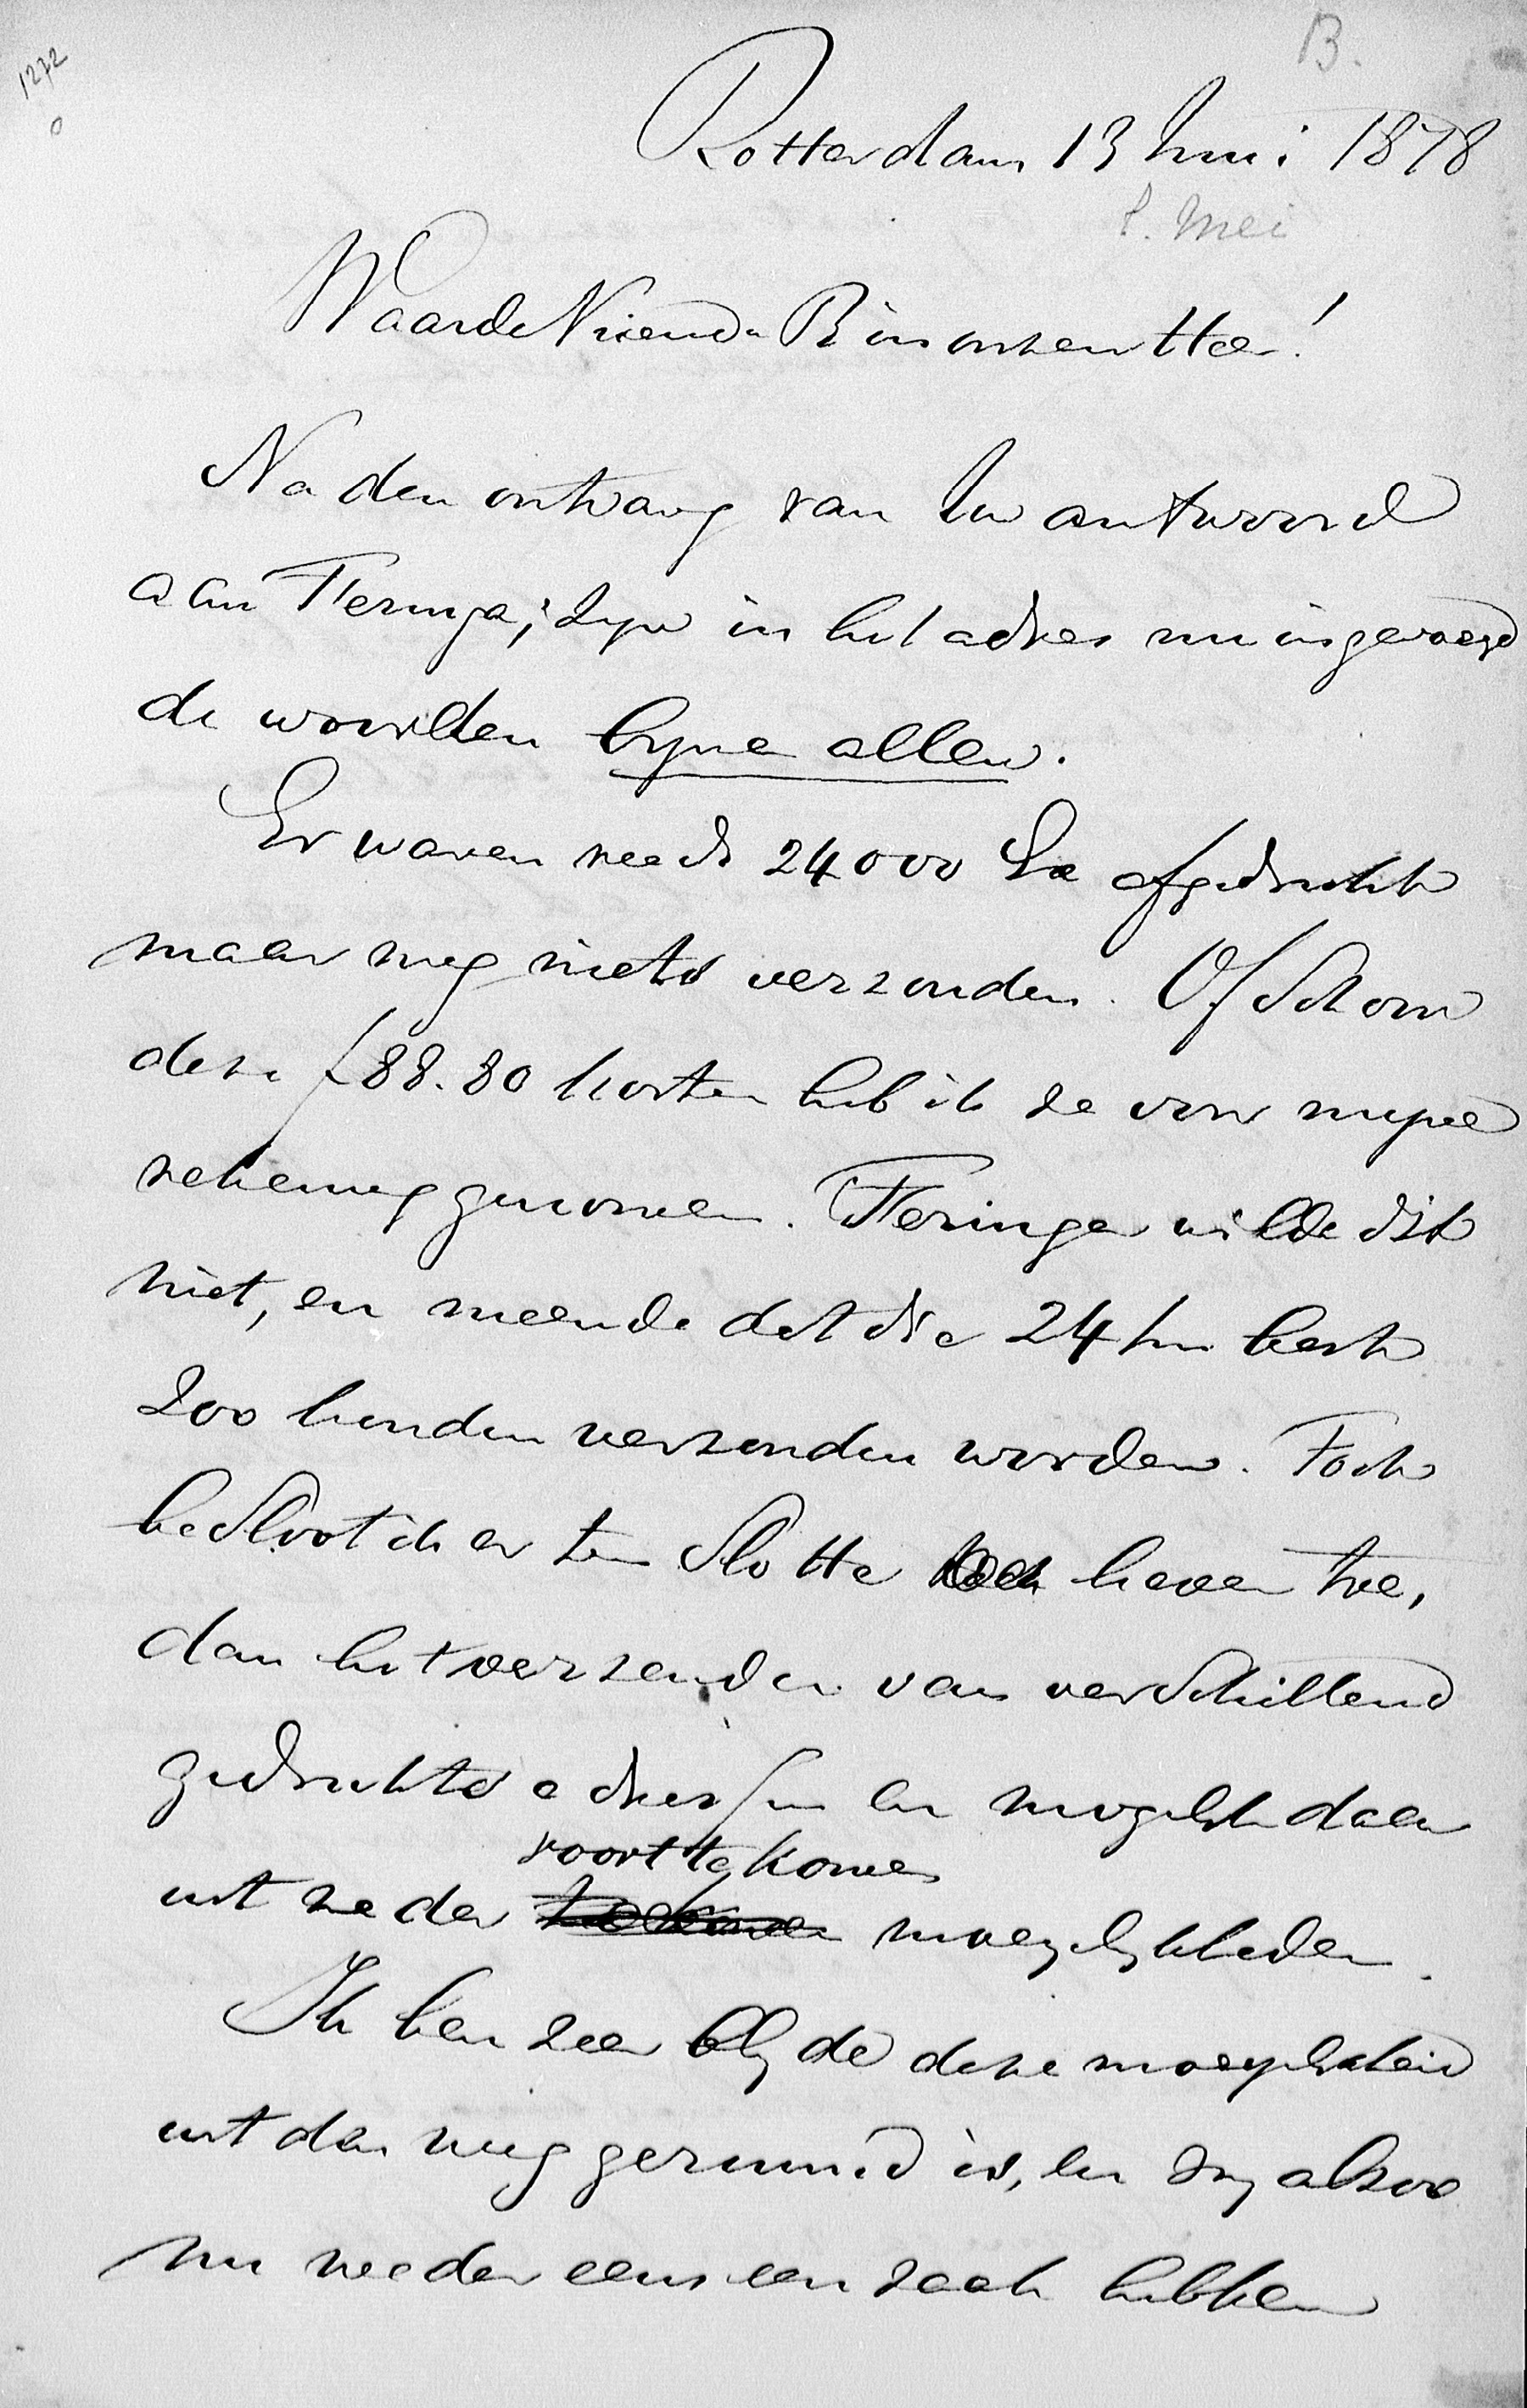 1272
0
B.
Rotterdam 13 Juni 1878
?. Mei
Waarde Vriend & Br in onzen Heer!
Na den ontvang van Uw antwoord
aan Feringa, zyn in het adres nu ingevoegd
de woorden byna allen.
Er waren reeds 24000 Ex afgedrukt
maar nog niets verzonden. Ofschoon
deze f 88.80 kosten heb ik ze voor myne
rekening genomen. Feringa wilde dit
niet, en meende dat die 24/m best
zoo konden verzonden worden. Toch
besloot ik er ten slotte toe,
dan het verzenden van verschillend
gedrukte adressen en mogelyk daar
voort te komen
uit ne der moeyelykheden.
Ik ben zeer blyde deze moeyelykheid
uit den weg geruimd is, en wy alzoo
nu weder eens een zaak hebben